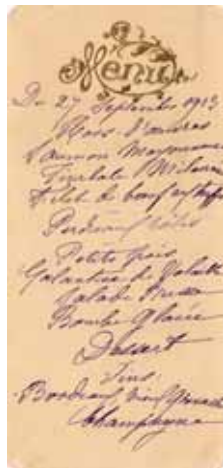 Menu
Du 27 Septembre 191
Hors d'œuvres
Saumon Mayonnaise
Timbale Milanaise
Filet de bœuf
Perdreaux rôtis
Petits pois
Galantine de Volaille
Salade Russe
Bombe Glacée
Dessert
Vins
Bordeaux vieux
Champagne